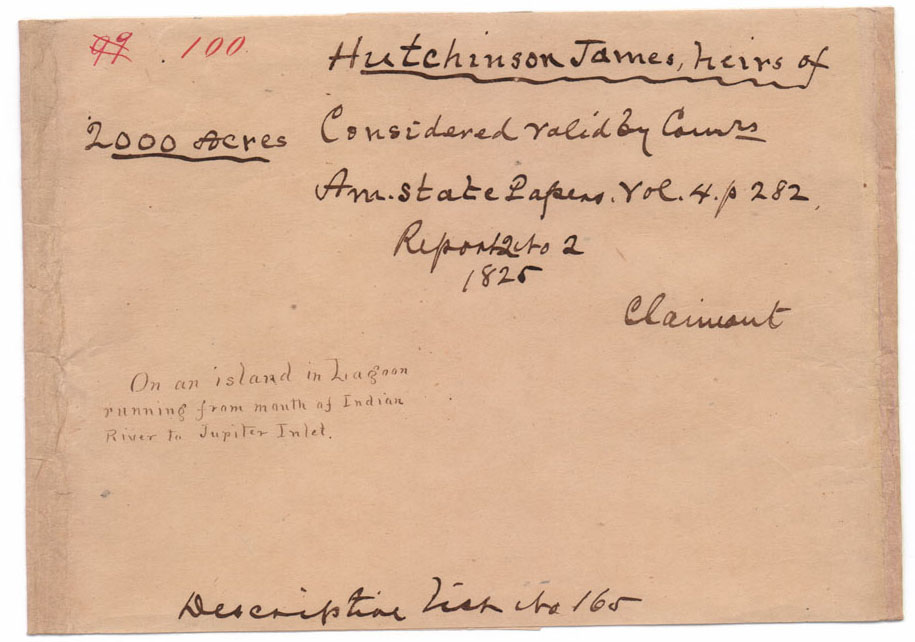 99 . 100
Hutchinson James, heirs of
2000 Acres
Considered valid by Comrs
Am. State Papers. Vol. 4. p 282.
Report No 2
1825
Claimant
On an island in Lagoon
running from mouth of Indian
River to Jupiter Inlet.
Descriptive List No 165